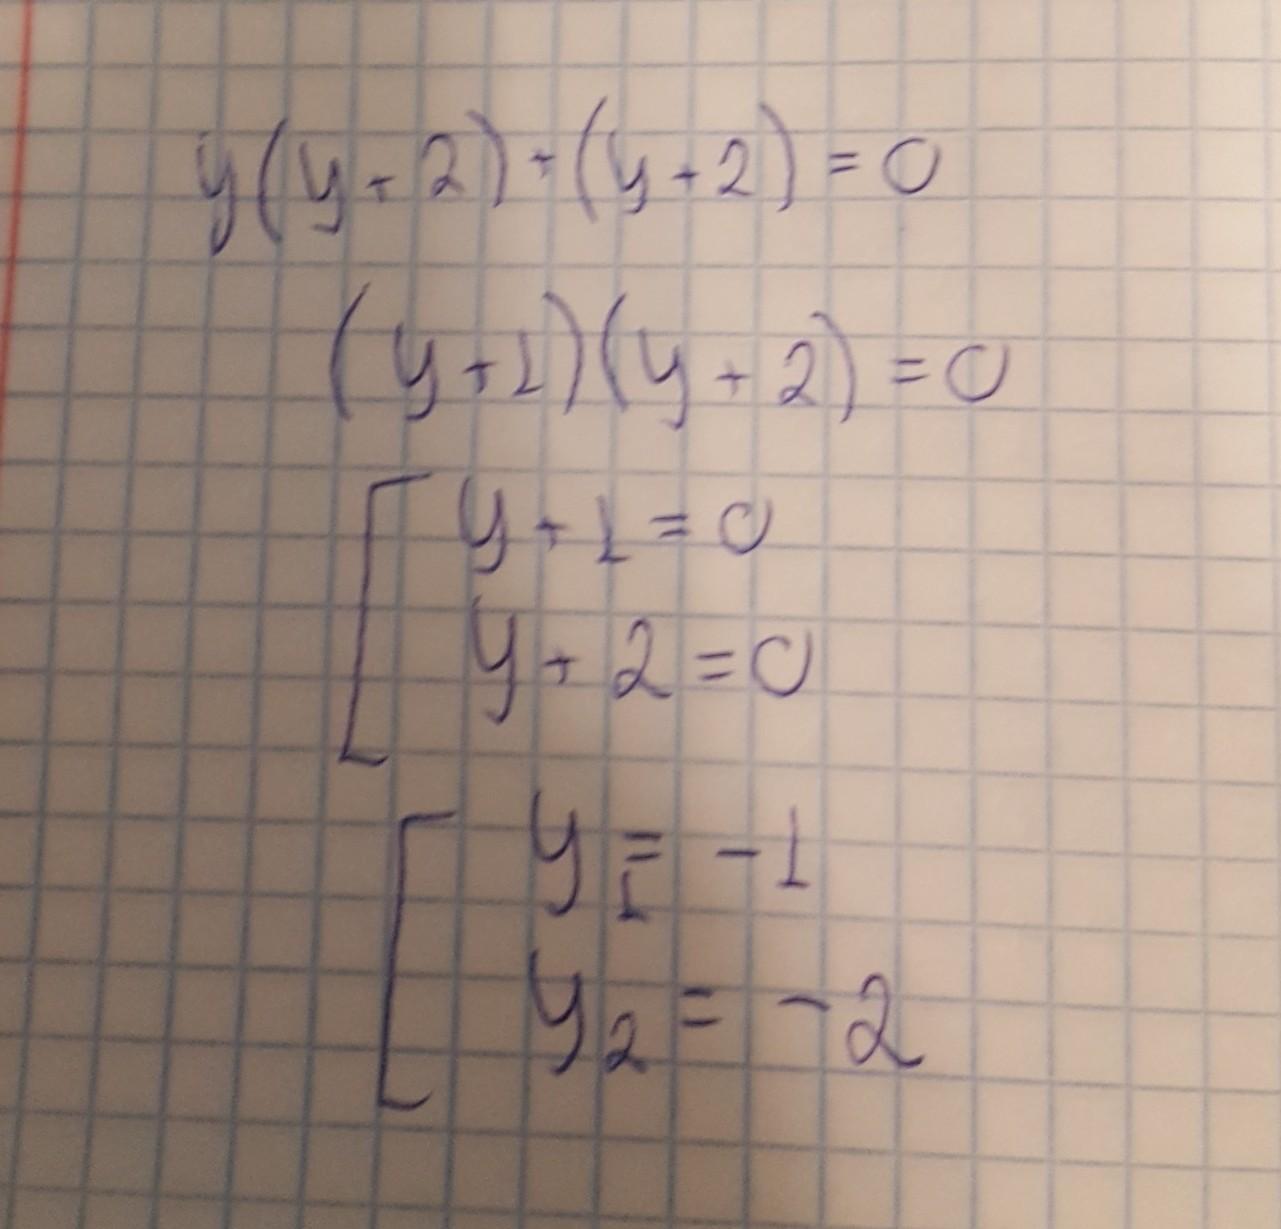 y(y+2)+(y+2)=0
(y+1)(y+2)=0
y+1=0
y+2=0
y₁=-1
y₂=-2